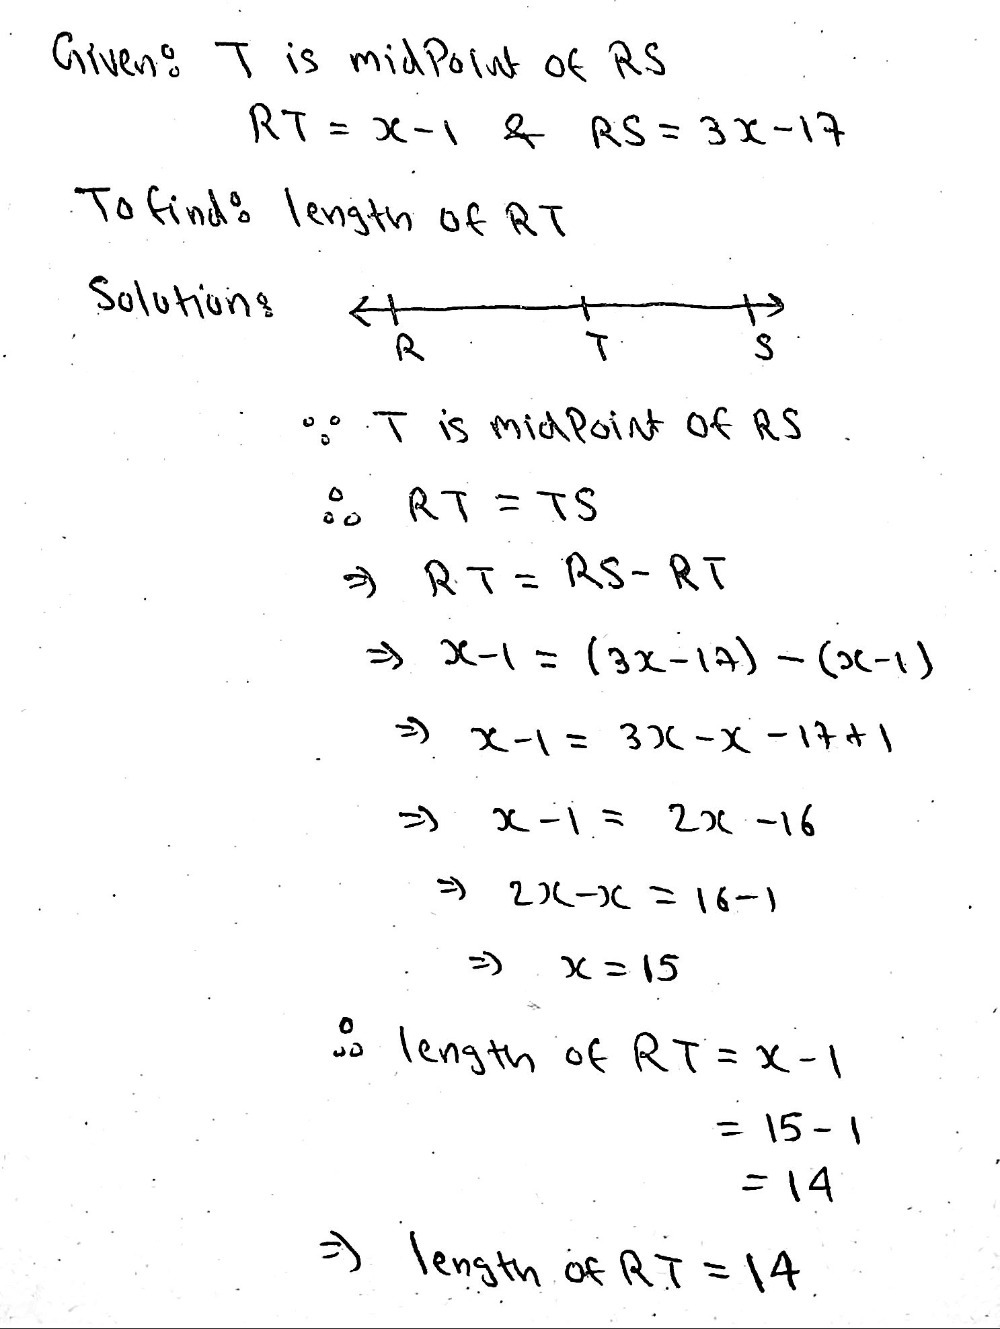 Given: T is midPoint of RS
RT = x-1 & RS = 3x-17
To find: length of RT
Solution:
R T S
∵ T is midPoint of RS
∴ RT = TS
⇒ RT = RS - RT
⇒ x-1 = (3x-17) - (x-1)
⇒ x-1 = 3x-x-17+1
⇒ x-1 = 2x-16
⇒ 2x-x = 16-1
⇒ x = 15
∴ length of RT = x-1
= 15-1
= 14
⇒ length of RT = 14